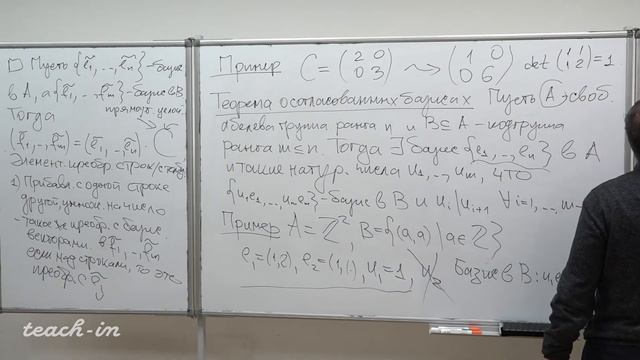 □ Пусть {ẽ₁, .., ẽₙ} - базис
в A, а {f̃₁, .., f̃ₘ} - базис в B
Тогда
(f̃₁, .., f̃ₘ) = (ẽ₁, .., ẽₙ) · C
Элемент. преобр. строк/столб.
1) Прибавл. с одной строке
другой, умнож. на число
- такое же преобр. с базис
векторами. в
если над строками, то это
преобр. с
Пример C = (2 0 0 3) ⇝ (1 0 0 6) det (1 1 1 2) = 1
Теорема о согласованных базисах Пусть A - своб.
абелева группа ранга n и B ⊆ A - подгруппа
ранга m ≤ n. Тогда ∃ базис {e₁, .., eₙ} в A
и такие натур. числа u₁, .., uₘ, что
{u₁e₁, .., uₘeₘ} - базис в B и uᵢ | uᵢ₊₁ ∀ i = 1, .., m-
Пример A = ℤ², B = {(a,a) | a ∈ ℤ}
e₁ = (1,2), e₂ = (1,1), u₁ = 1, u₂ Базис в B: u₁e
teach-in